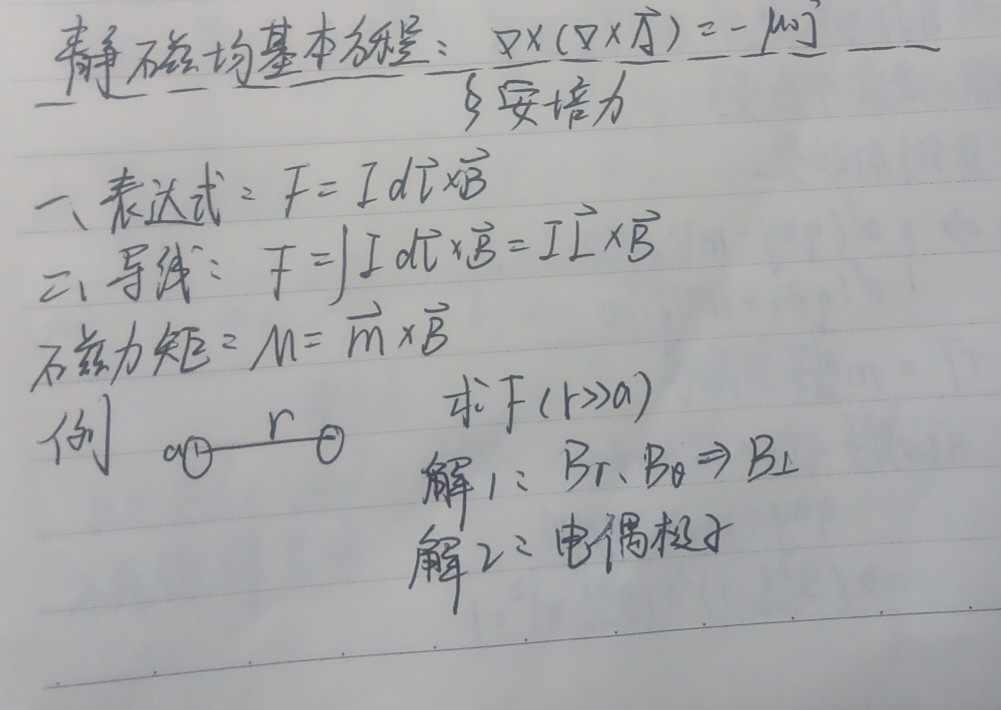 静磁均基本方程: ∇×(∇×A⃗) = -μ₀j⃗
§安培力
一、表达式: F = I dl⃗×B⃗
二、导线: F = ∫I dl⃗×B⃗ = I L⃗×B⃗
磁力矩: M = m⃗×B⃗
例 a r 求F(r≫a)
解1: Br、Bθ ⇒ B⊥
解2: 电偶极子